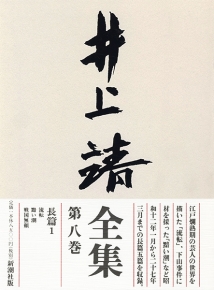 井上靖
江戸爛熟期の芸人の世界を
描いた「流転」、下山事件に
材を採った「黯い潮」など昭
和十二年一月から二十七年
三月までの長篇五篇を収録。
全集
第八巻
長篇1
流転
黯い潮
戦国無頼
新潮社版